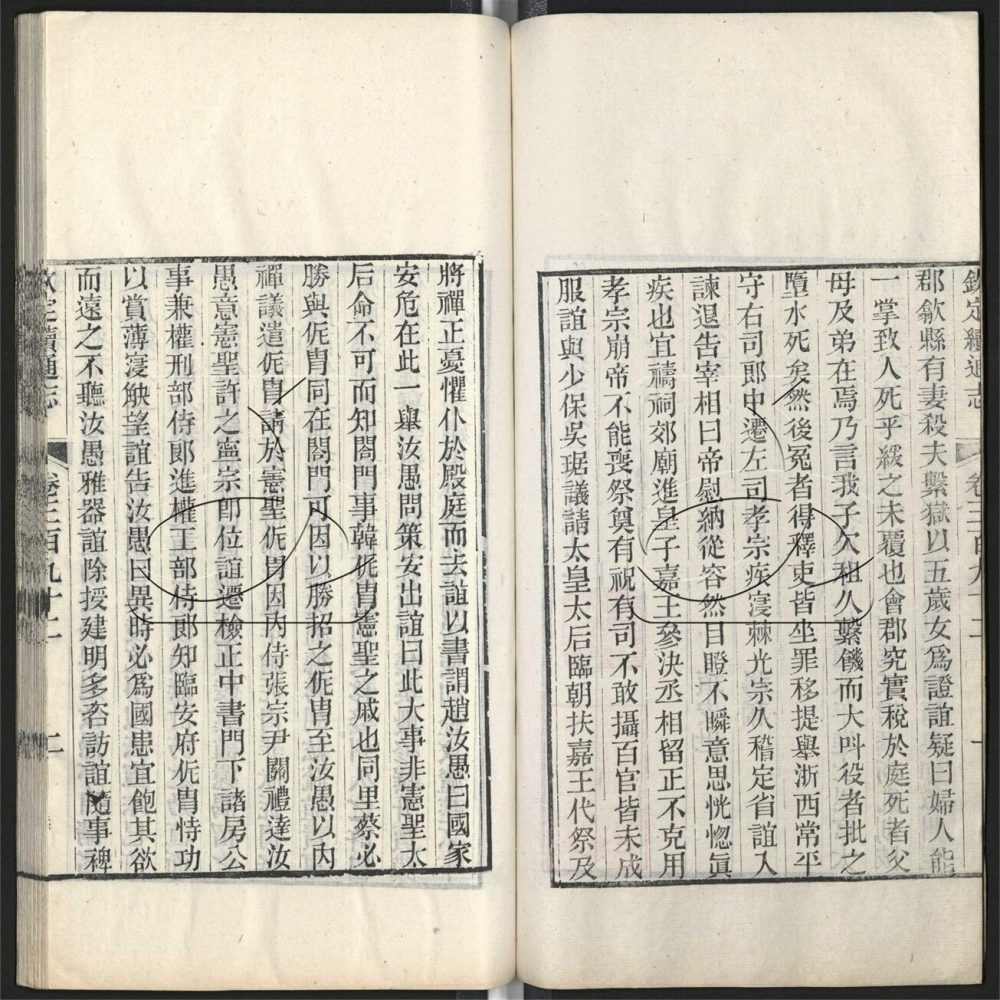 欽定續通志 卷三百九十二 一
郡歙縣有妻殺夫繫獄以五歲女爲證誼疑曰婦人能
一掌致人死乎緩之未覆也會郡究實稅於庭死者父
母及弟在焉乃言我子欠租久繫饑而大叫役者批之
墮水死矣然後冤者得釋吏皆坐罪移提舉浙西常平
守右司郎中遷左司孝宗疾寖棘光宗久稽定省誼入
諫退告宰相曰帝慰納從容然目瞪不瞬意思恍惚眞
疾也宜禱祠郊廟進皇子嘉王參決丞相留正不克用
孝宗崩帝不能喪祭奠有祝有司不敢攝百官皆未成
服誼與少保吳琚議請太皇太后臨朝扶嘉王代祭及
將禪正憂懼仆於殿庭而去誼以書謂趙汝愚曰國家
安危在此一舉汝愚問策安出誼曰此大事非憲聖太
后命不可而知閤門事韓侂胄憲聖之戚也同里蔡必
勝與侂胄同在閤門可因以勝招之侂胄至汝愚以內
禪議遣侂胄請於憲聖侂胄因內侍張宗尹關禮達汝
愚意憲聖許之寧宗卽位誼遷檢正中書門下諸房公
事兼權刑部侍郎進權工部侍郎知臨安府侂胄恃功
以賞薄寖觖望誼告汝愚曰異時必爲國患宜飽其欲
而遠之不聽汝愚雅器誼除授建明多咨訪誼隨事裨
欽定續通志 卷三百九十二 二